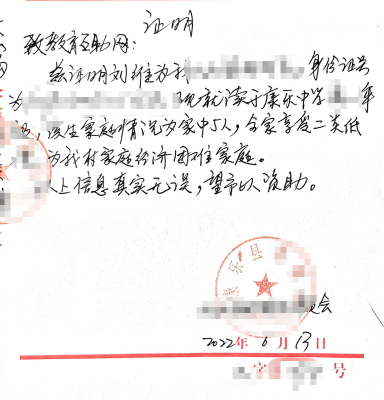 证明
致教育互助网：
兹证明刘维为我 身份证号
为 现就读于康乐中学 年
，该生家庭情况为家中5人，全家享受二类低
为我村家庭经济困难家庭。
以上信息真实无误，望予以资助。
康乐县
委会
2022年 6月 13日
字 号